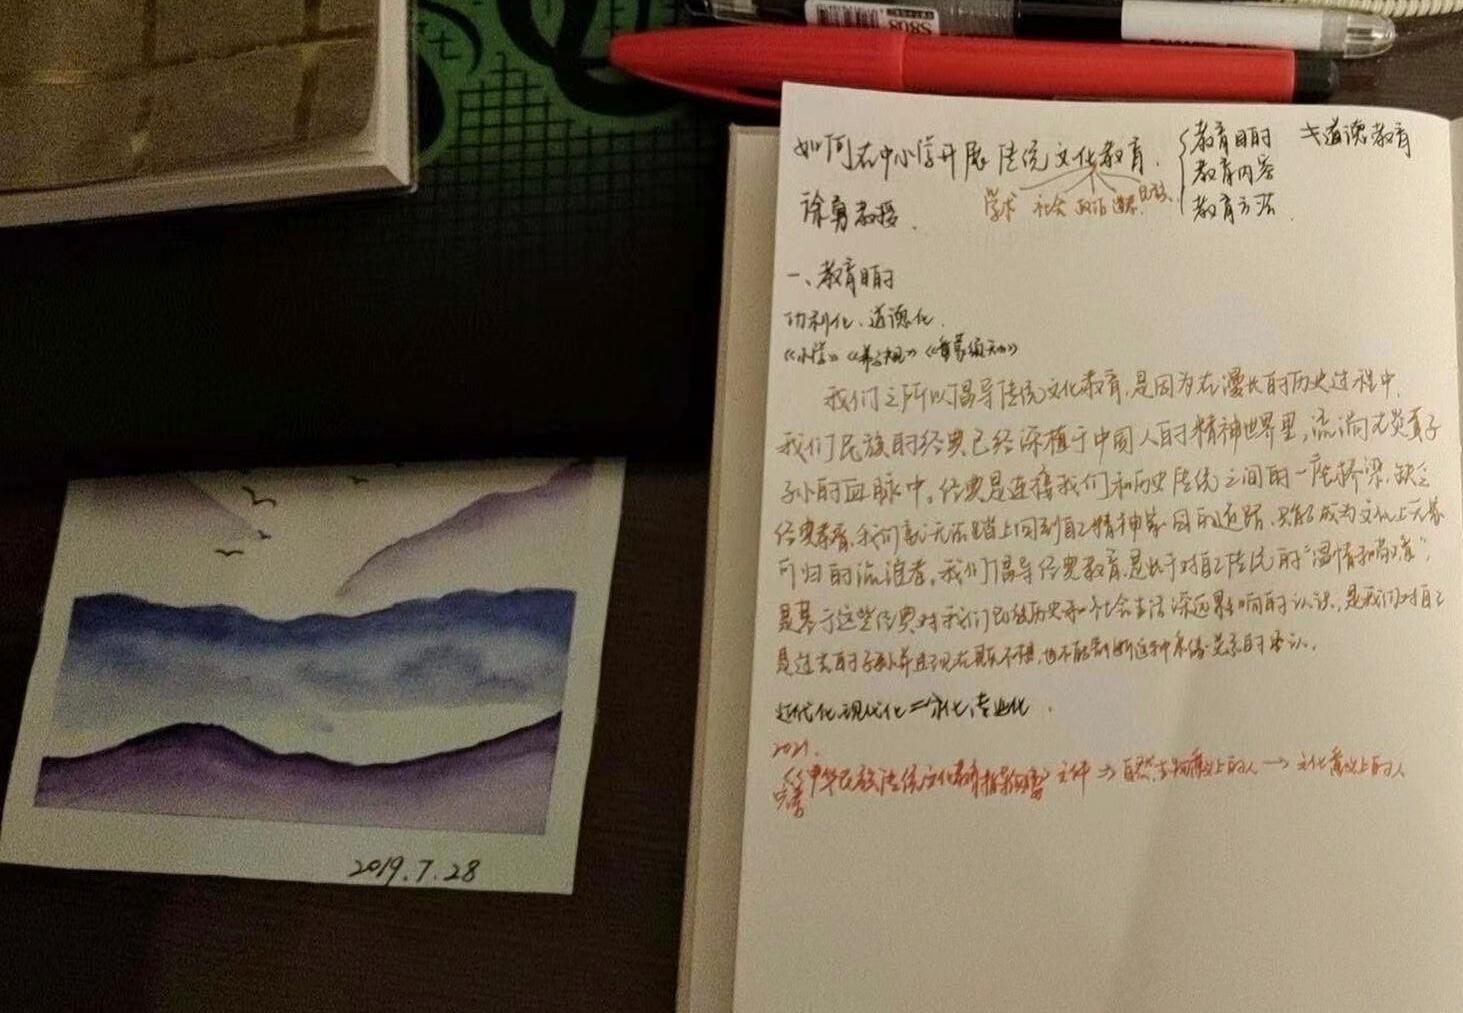 S808
如何在中小学开展传统文化教育.
教育目的
教育内容
教育方法.
道德教育
徐勇教授.
学术 社会 政治 道德 民族
一、教育目的
功利化、道德化.
《小学》《弟子规》《童蒙须知》
我们之所以倡导传统文化教育,是因为在漫长的历史过程中,
我们民族的经典已经深植于中国人的精神世界里,流淌在炎黄子
孙的血脉中。经典是连接我们和历史传统之间的一座桥梁,缺乏
经典教育,我们就无法踏上回到自己精神家园的道路,只能成为文化上无家
可归的流浪者。我们倡导经典教育,是出于对自己传统的“温情和敬意”,
是基于这些经典对我们民族历史和社会生活深远影响的认识,是我们对自己
是过去的子孙并且现在既不想,也不能割断这种承传关系的承认.
近代化,现代化=分化,专业化.
2021.
《完善中华民族传统文化教育指导纲要》文件⇒自然生物意义上的人→文化意义上的人
2019.7.28